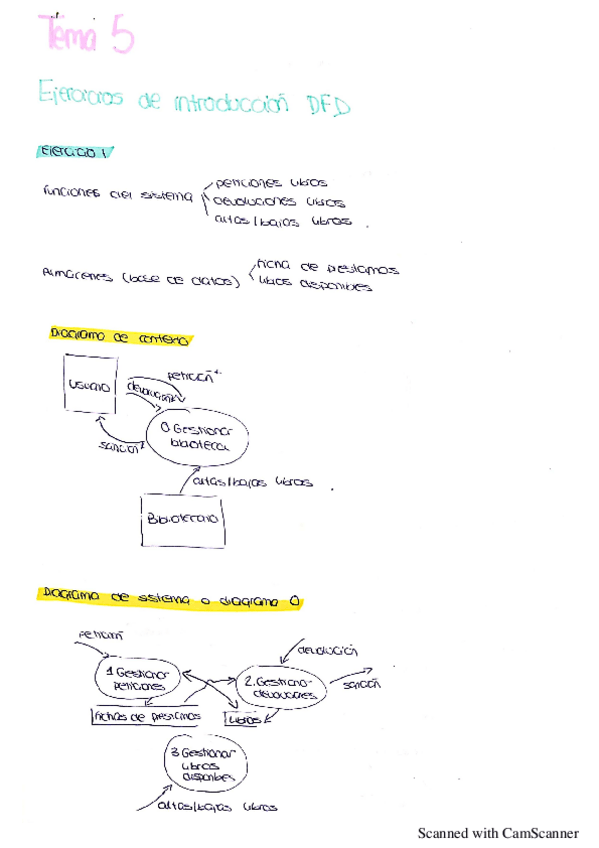 Tema 5
Ejercicios de introducción DFD
EJERCICIO 1
Funciones del sistema
peticiones libros
devoluciones libros
altas/bajas libros.
Almacenes (base de datos)
ficha de préstamos
libros disponibles
Diagrama de contexto
Usuario
petición
devolución
sanción
0. Gestionar
biblioteca
altas/bajas libros.
Bibliotecario
Diagrama de sistema o diagrama 0
petición
devolución
1. Gestionar
peticiones
2. Gestionar
devoluciones
sanción
fichas de préstamos
libros
3. Gestionar
libros
disponibles
altas/bajas libros
Scanned with CamScanner